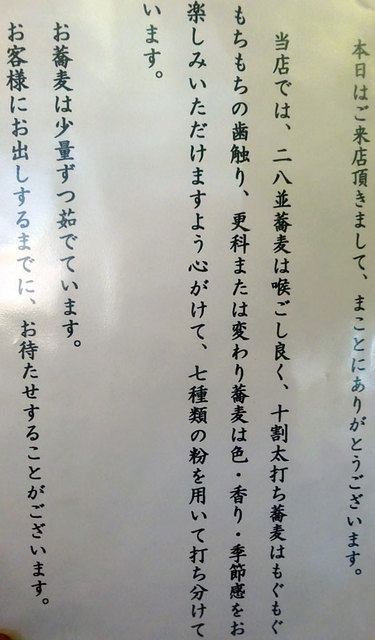 本日はご来店頂きまして、まことにありがとうございます。
当店では、二八並蕎麦は喉ごし良く、十割太打ち蕎麦はもぐもぐ
もちもちの歯触り、更科または変わり蕎麦は色・香り・季節感をお
楽しみいただけますよう心がけて、七種類の粉を用いて打ち分けて
います。
お蕎麦は少量ずつ茹でています。
お客様にお出しするまでに、お待たせすることがございます。